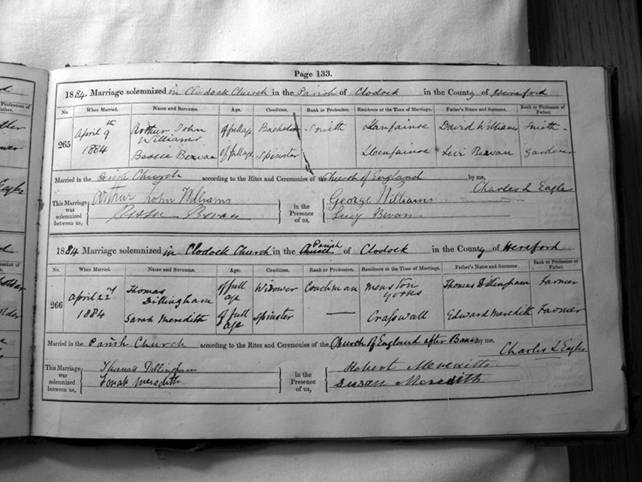 Page 133.
1884. Marriage solemnized in Clodock Church in the Parish of Clodock in the County of Hereford
No. When Married. Name and Surname. Age. Condition. Rank or Profession. Residence at the Time of Marriage. Father's Name and Surname. Rank or Profession of Father.
265 April 9th 1884 Arthur John Williams of full age Bachelor Smith Llanfainoe David Williams Smith
Bessie Bevan of full age Spinster Llanfainoe Levi Bevan Gardener
Married in the Church according to the Rites and Ceremonies of the Church of England by me,
Charles L Eagles
This Marriage was solemnized between us, Arthur John Williams in the Presence of us, George Williams
Bessie Bevan Lucy Bevan
1884. Marriage solemnized in Clodock Church in the Parish of Clodock in the County of Hereford
No. When Married. Name and Surname. Age. Condition. Rank or Profession. Residence at the Time of Marriage. Father's Name and Surname Rank or Profession of Father.
266 April 22nd 1884 Thomas Dillingham of full age Widower Coachman Thomas Dillingham Farmer
Sarah Meredith of full age Spinster — Craswall Edward Meredith Farmer
Married in the Parish Church according to the Rites and Ceremonies of the Church of England after Banns by me,
Charles L Eagles
This Marriage was solemnized between us, Thomas Dillingham in the Presence of us, Robert Meredith
Sarah Meredith Susan Meredith